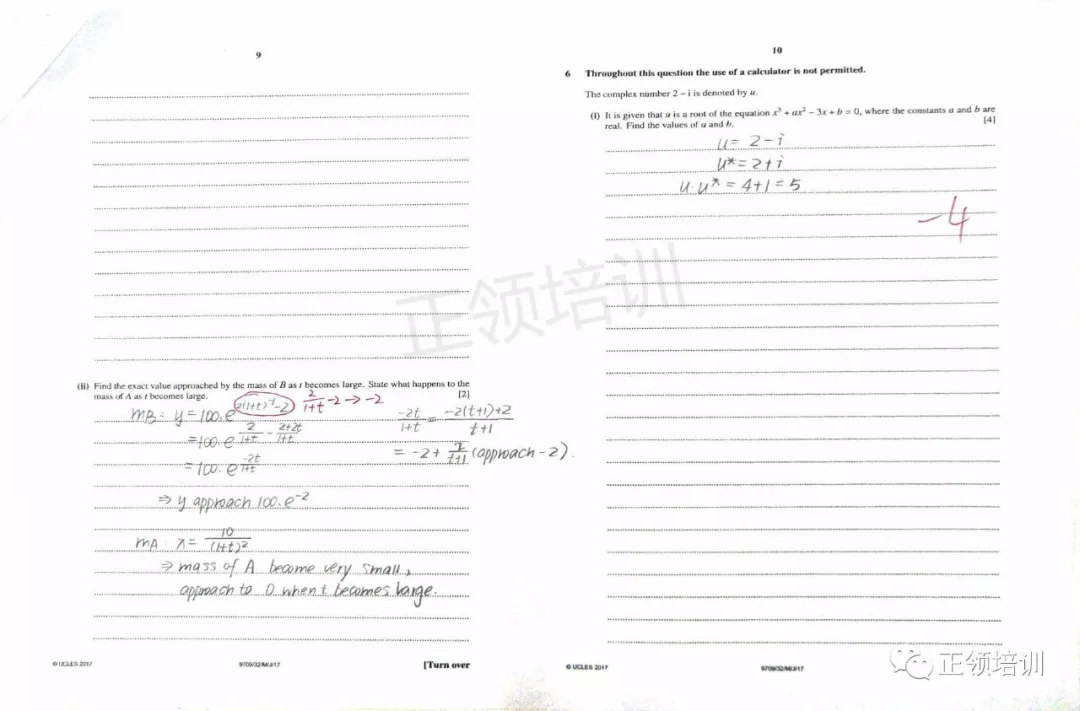 9
(ii) Find the exact value approached by the mass of B as t becomes large. State what happens to the
mass of A as t becomes large. [2]
mB: y = 100·e^(2(1+t)^-1 - 2) 2/(1+t) - 2 → -2
= 100·e^(2/(1+t) - (2+2t)/(1+t))
= 100·e^(-2t/(1+t))
-2t/(1+t) = (-2(t+1)+2)/(t+1)
= -2 + 2/(t+1) (approach -2).
⇒ y approach 100·e^-2
mA: x = 10/(1+t)^2
⇒ mass of A become very small,
approach to 0 when t becomes large.
© UCLES 2017 9709/32/M/J/17 [Turn over
10
6 Throughout this question the use of a calculator is not permitted.
The complex number 2 – i is denoted by u.
(i) It is given that u is a root of the equation x³ + ax² – 3x + b = 0, where the constants a and b are
real. Find the values of a and b. [4]
u = 2 - i
u* = 2 + i
u·u* = 4+1 = 5
-4
© UCLES 2017 9709/32/M/J/17
正领培训
正领培训